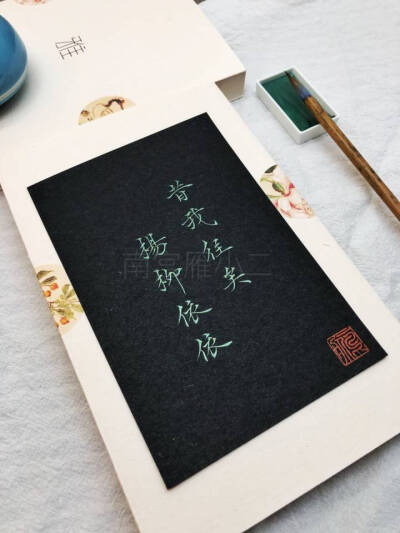 雅
昔我往矣
楊柳依依
南宫雁小二